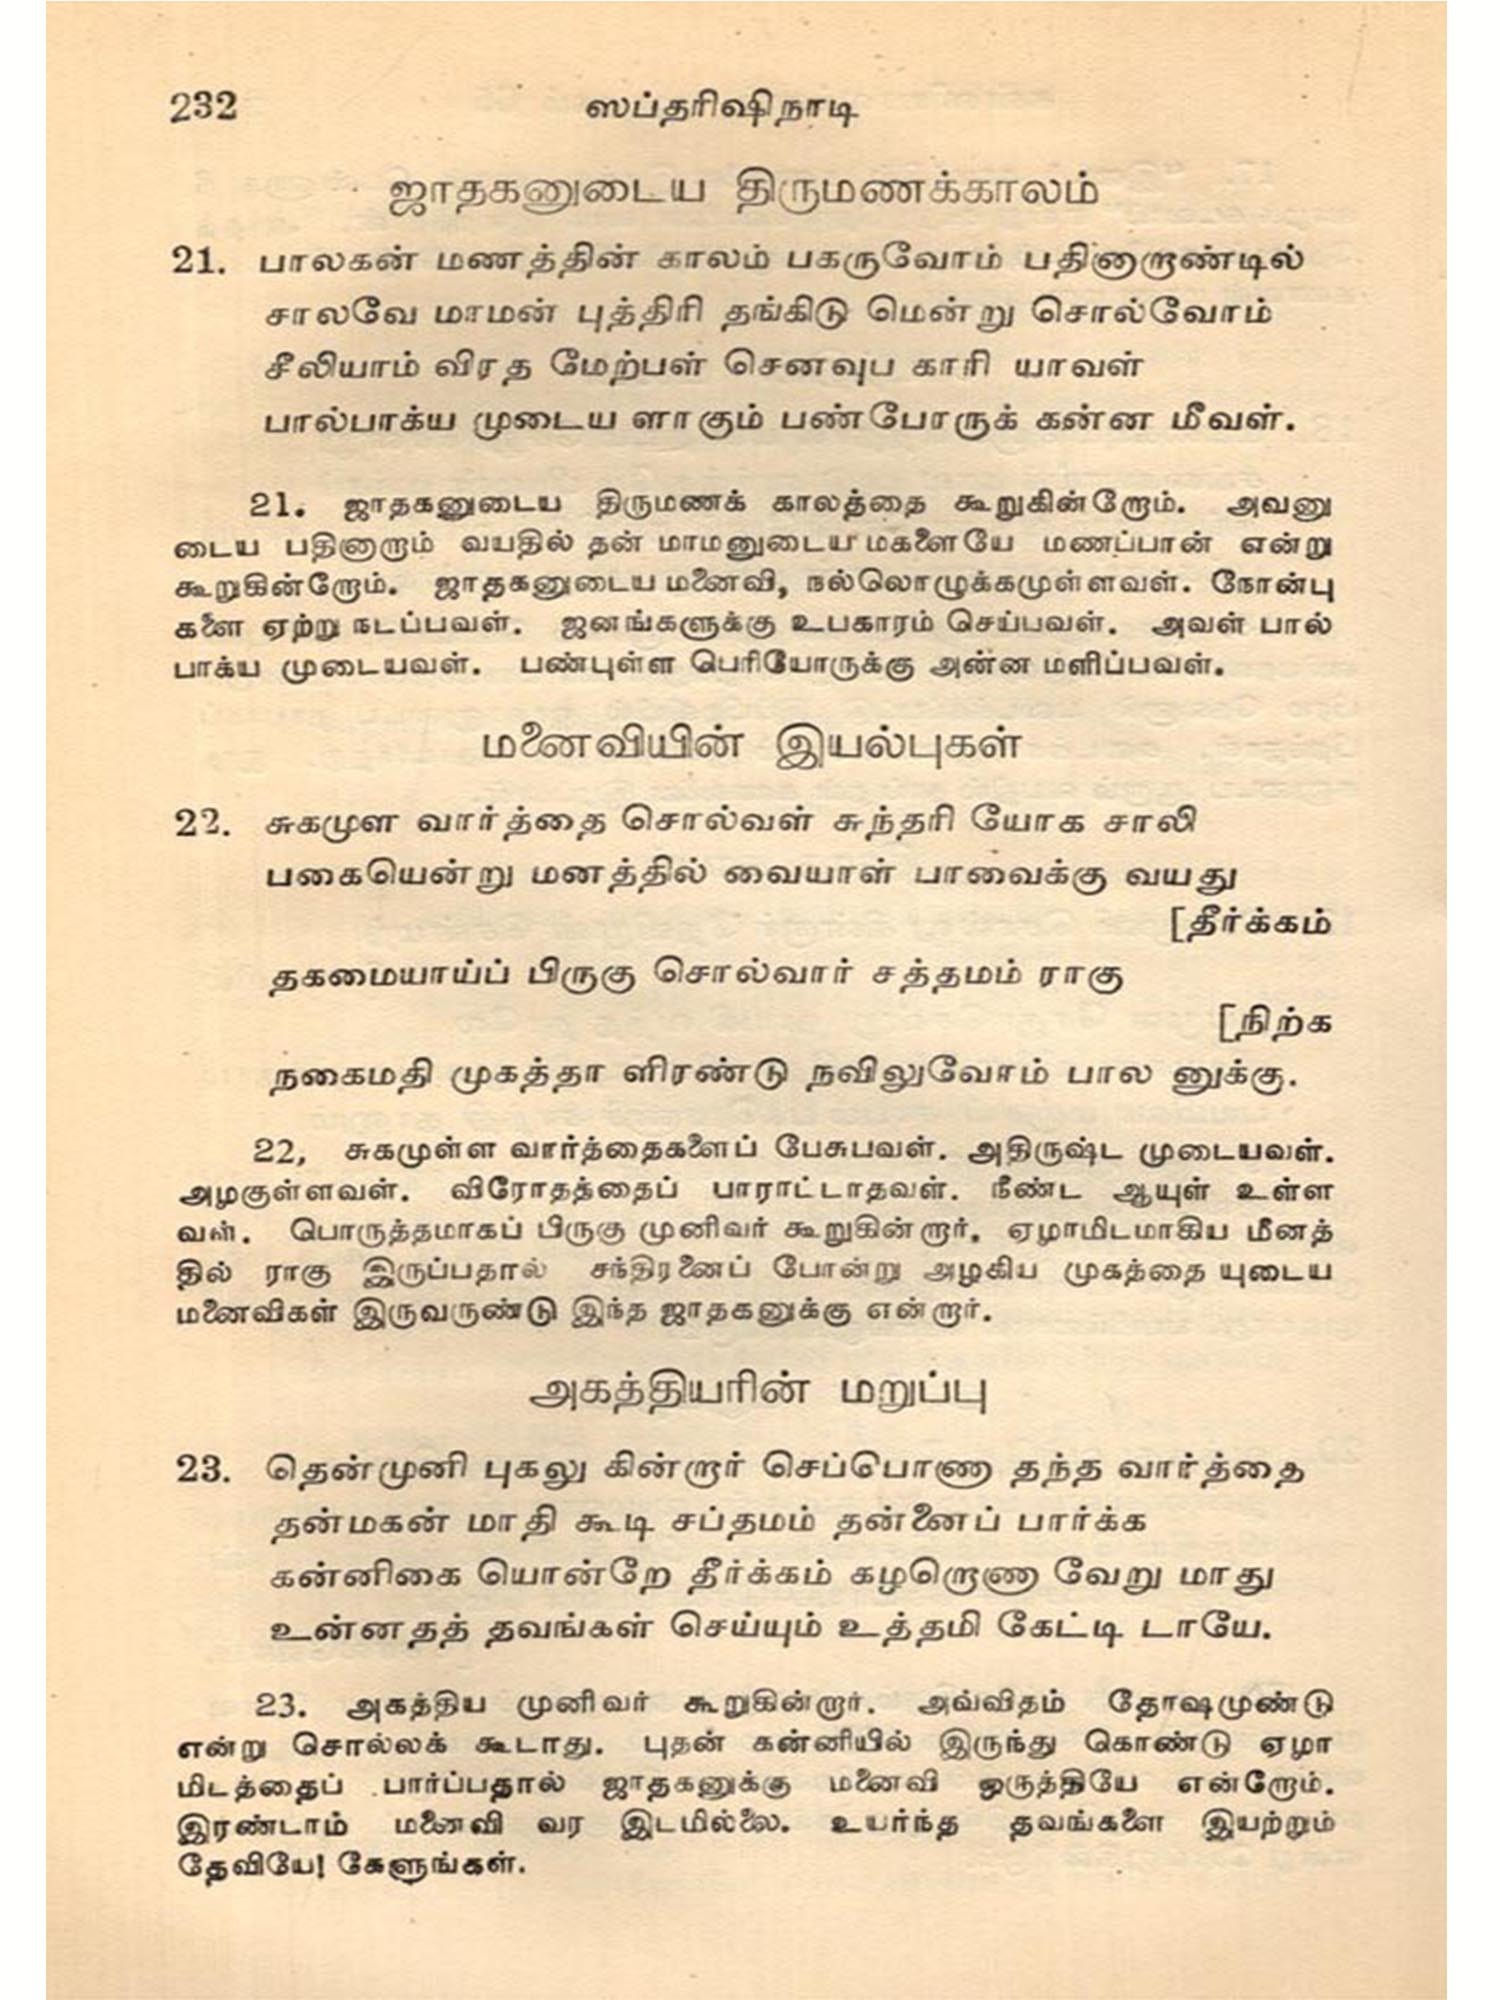 232 ஸப்தரிஷிநாடி
ஜாதகனுடைய திருமணக்காலம்
21. பாலகன் மணத்தின் காலம் பகருவோம் பதினாறாண்டில்
சாலவே மாமன் புத்திரி தங்கிடு மென்று சொல்வோம்
சீலியாம் விரத மேற்பள் செனவுப காரி யாவள்
பால்பாக்ய முடைய ளாகும் பண்போருக் கன்ன மீவள்.
21. ஜாதகனுடைய திருமணக் காலத்தை கூறுகின்றோம். அவனு
டைய பதினாறாம் வயதில் தன் மாமனுடைய மகளையே மணப்பான் என்று
கூறுகின்றோம். ஜாதகனுடைய மனைவி, நல்லொழுக்கமுள்ளவள். நோன்பு
களை ஏற்று நடப்பவள். ஜனங்களுக்கு உபகாரம் செய்பவள். அவள் பால்
பாக்ய முடையவள். பண்புள்ள பெரியோருக்கு அன்ன மளிப்பவள்.
மனைவியின் இயல்புகள்
22. சுகமுள வார்த்தை சொல்வள் சுந்தரி யோக சாலி
பகையென்று மனத்தில் வையாள் பாவைக்கு வயது
[தீர்க்கம்
தகமையாய்ப் பிருகு சொல்வார் சத்தமம் ராகு
[நிற்க
நகைமதி முகத்தா ளிரண்டு நவிலுவோம் பால னுக்கு.
22, சுகமுள்ள வார்த்தைகளைப் பேசுபவள். அதிருஷ்ட முடையவள்.
அழகுள்ளவள். விரோதத்தைப் பாராட்டாதவள். நீண்ட ஆயுள் உள்ள
வள். பொருத்தமாகப் பிருகு முனிவர் கூறுகின்றார். ஏழாமிடமாகிய மீனத்
தில் ராகு இருப்பதால் சந்திரனைப் போன்று அழகிய முகத்தை யுடைய
மனைவிகள் இருவருண்டு இந்த ஜாதகனுக்கு என்றார்.
அகத்தியரின் மறுப்பு
23. தென்முனி புகலு கின்றார் செப்பொணா தந்த வார்த்தை
தன்மகன் மாதி கூடி சப்தமம் தன்னைப் பார்க்க
கன்னிகை யொன்றே தீர்க்கம் கழறொணா வேறு மாது
உன்னதத் தவங்கள் செய்யும் உத்தமி கேட்டி டாயே.
23. அகத்திய முனிவர் கூறுகின்றார். அவ்விதம் தோஷமுண்டு
என்று சொல்லக் கூடாது. புதன் கன்னியில் இருந்து கொண்டு ஏழா
மிடத்தைப் பார்ப்பதால் ஜாதகனுக்கு மனைவி ஒருத்தியே என்றோம்.
இரண்டாம் மனைவி வர இடமில்லை. உயர்ந்த தவங்களை இயற்றும்
தேவியே! கேளுங்கள்.